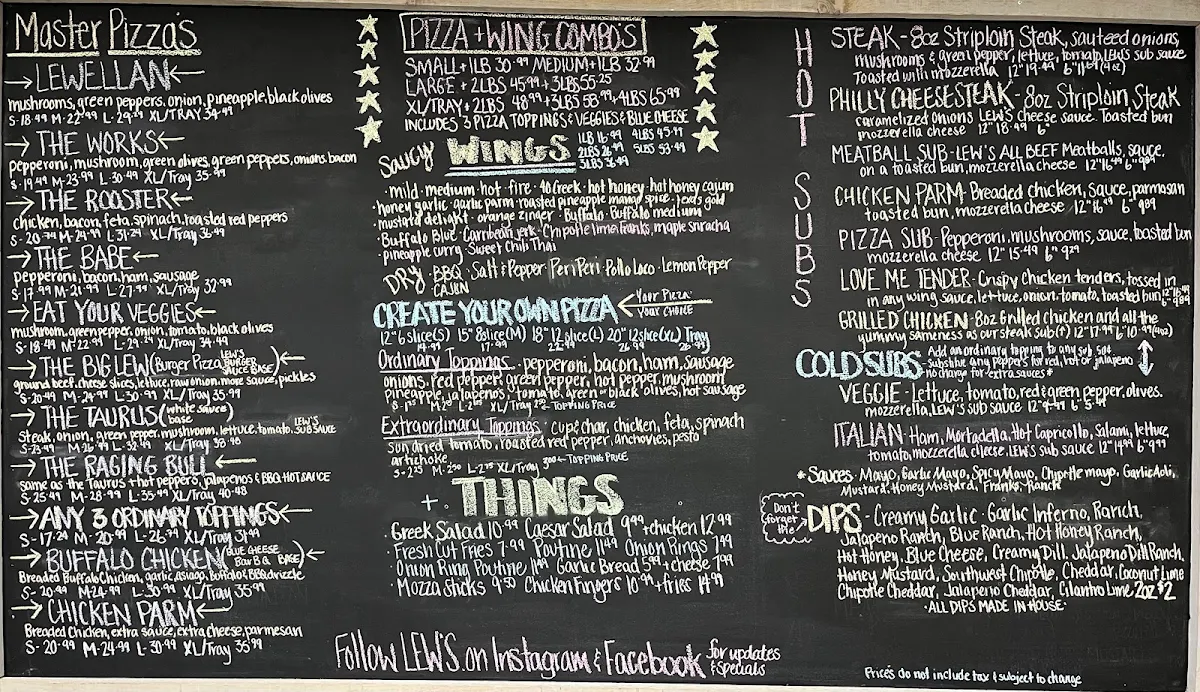 Master Pizza's
→LEWELLAN←
mushrooms, green peppers, onion, pineapple, black olives
S-18.49 M-22.99 L-29.29 XL/TRAY 34.49
→THE WORKS←
pepperoni, mushroom, green olives, green peppers, onions, bacon
S-19.49 M-23.99 L-30.49 XL/Tray 35.49
→THE ROOSTER←
chicken, bacon, feta, spinach, roasted red peppers
S-20.79 M-24.99 L-31.29 XL/Tray 36.49
→THE BABE←
pepperoni, bacon, ham, sausage
S-17.99 M-21.99 L-27.99 XL/Tray 32.99
→EAT YOUR VEGGIES←
mushroom, green pepper, onion, tomato, black olives
S-18.49 M-22.99 L-29.29 XL/Tray 34.49
→THE BIG LEW (Burger Pizza LEW'S BURGER SAUCE BASE)←
ground beef, cheese slices, lettuce, raw onion, more sauce, pickles
S-20.49 M-24.99 L-30.99 XL/Tray 35.99
→THE TAURUS (white sauce base)
steak, onion, green pepper, mushroom, lettuce, tomato, LEW'S SUB SAUCE
S-23.49 M-26.99 L-32.49 XL/Tray 38.48
→THE RAGING BULL←
same as the Taurus + hot peppers, jalapenos & BBQ HOT SAUCE
S-25.49 M-28.99 L-35.49 XL/Tray 40.48
→ANY 3 ORDINARY TOPPINGS←
S-17.24 M-20.99 L-26.74 XL/Tray 31.49
→BUFFALO CHICKEN (BLUE CHEESE Bar B Q BASE)←
Breaded Buffalo Chicken, garlic, asiago, buffalo & BBQ drizzle
S-20.99 M-24.99 L-30.99 XL/Tray 35.99
→CHICKEN PARM←
Breaded Chicken, extra sauce, extra cheese, parmesan
S-20.99 M-24.99 L-30.99 XL/Tray 35.99
PIZZA + WING COMBO'S
SMALL + 1LB 30.99 MEDIUM + 1LB 32.99
LARGE + 2LBS 45.99 + 3LBS 55.25
XL/TRAY + 2LBS 48.99 + 3LBS 58.99 + 4LBS 65.99
INCLUDES 3 PIZZA TOPPINGS & VEGGIES & BLUE CHEESE
Saucy WINGS
1LB 16.99 4LBS 45.99
2LBS 26.99 5LBS 53.49
3LBS 36.49
·mild·medium·hot·fire·40 Creek·hot honey·hot honey cajun
·honey garlic·garlic parm·roasted pineapple mango spice·texas gold
·mustard delight·orange zinger·Buffalo·Buffalo medium
·Buffalo Blue·Carribean jerk·Chipotle lime franks, maple sriracha
·pineapple curry·Sweet Chili Thai
DRY·BBQ·Salt & Pepper·Peri Peri·Pollo Loco·Lemon Pepper
·CAJUN
CREATE YOUR OWN PIZZA ← Your Pizza Your CHOICE
12" 6 slice(S) 15" 8 slice(M) 18" 12 slice(L) 20" 12 slice(XL) Tray
14.99 17.99 22.99 26.99 26.99
Ordinary Toppings·pepperoni, bacon, ham, sausage
onions, red pepper, green pepper, hot pepper, mushroom
pineapple, jalapenos, tomato, green or black olives, hot sausage
XL/Tray ←TOPPING PRICE
Extraordinary Toppings·cup & char, chicken, feta, spinach
sun dried tomato, roasted red pepper, anchovies, pesto
artichoke
XL/Tray 3.00←TOPPING PRICE
+ THINGS
·Greek Salad 10.99 Caesar Salad 9.99 + chicken 12.99
·Fresh Cut Fries 7.99 Poutine 11.49 Onion Rings 7.99
·Onion Ring Poutine 11.99 Garlic Bread 5.99 + cheese 7.99
·Mozza sticks 9.50 Chicken Fingers 10.99 + fries 14.99
Follow LEW'S on Instagram & Facebook for updates & specials
HOT SUBS
STEAK-8oz Striploin Steak, sauteed onions,
mushrooms & green pepper, lettuce, tomato, LEW's sub sauce
Toasted with mozzerella 12" 19.99 6" 11.69 (4oz)
PHILLY CHEESESTEAK-8oz Striploin Steak
caramelized onions LEW'S cheese sauce. Toasted bun
mozzerella cheese 12" 18.49 6"
MEATBALL SUB-LEW'S ALL BEEF Meatballs, sauce,
on a toasted bun, mozzerella cheese 12" 16.99 6" 9.89
CHICKEN PARM-Breaded chicken, sauce, parmasan
toasted bun, mozzerella cheese 12" 16.99 6" 9.89
PIZZA SUB-Pepperoni, mushrooms, sauce, toasted bun
mozzerella cheese 12" 15.49 6" 9.29
LOVE ME TENDER-Crispy Chicken tenders, tossed in
in any wing sauce, lettuce, onion, tomato, toasted bun 12" 16.99 6" 9.89
GRILLED CHICKEN-8oz Grilled chicken and all the
yummy sameness as our steak sub(↑) 12" 17.99 6" 10.99 (4oz)
COLD SUBS Add an ordinary topping to any sub .50¢
substitue any peppers for red, hot or jalapeno
no charge for extra sauces*
VEGGIE-Lettuce, tomato, red & green pepper, olives.
mozzerella, LEW's sub sauce 12" 9.99 6" 5.99
ITALIAN-Ham, Mortadella, Hot Capricollo, Salami, lettuce,
tomato, mozzerella cheese, LEW's sub sauce 12" 14.99 6" 9.99
*Sauces-Mayo, Garlic Mayo, Spicy Mayo, Chipotle mayo, Garlic Aoli,
Mustard, Honey Mustard, Franks, Ranch
Don't forget the DIPS-Creamy Garlic·Garlic Inferno, Ranch,
Jalapeno Ranch, Blue Ranch, Hot Honey Ranch,
Hot Honey, Blue Cheese, Creamy Dill, Jalapeno Dill Ranch,
Honey Mustard, Southwest Chipotle, Cheddar, Coconut Lime
Chipotle Cheddar, Jalapeno Cheddar, Cilantro Lime 2oz $2
·ALL DIPS MADE IN HOUSE·
Price's do not include tax & subject to change